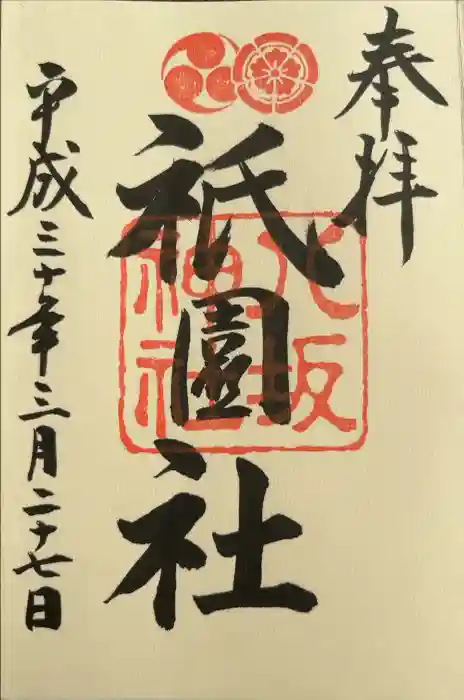 奉拝
祇園社
八坂神社
平成三十年三月二十七日